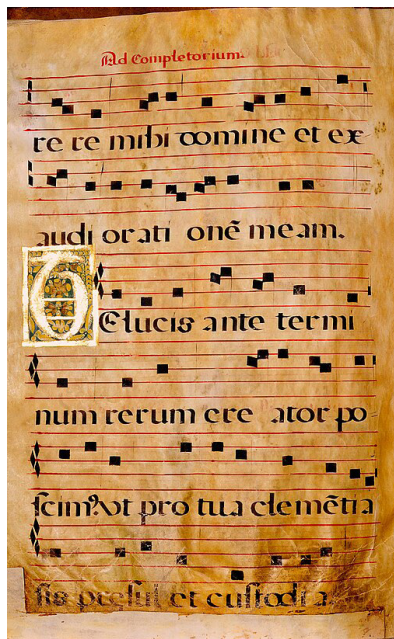 Ad Completorium.
re re mihi domine et ex
audi orati onē meam.
TE lucis ante termi
num rerum cre ator po
scim⁹ vt pro tua clemētia
sis presul et custodia